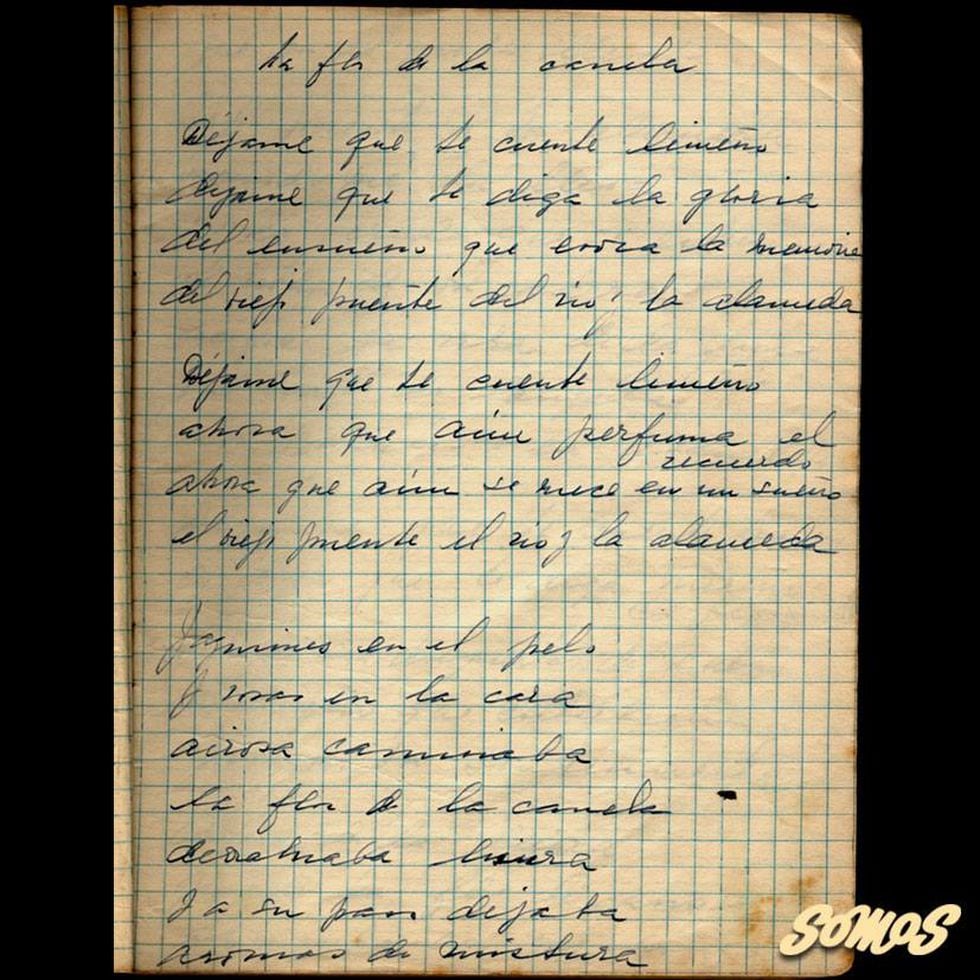 La flor de la canela
Déjame que te cuente limeño
dejame que te diga la gloria
del ensueño que evoca la memoria
del viejo puente del rio y la alameda
Déjame que te cuente limeño
ahora que aún perfuma el
recuerdo
ahora que aún se mece en un sueño
el viejo puente el rio y la alameda
Jazmines en el pelo
y rosas en la cara
airosa caminaba
la flor de la canela
derramaba lisura
y a su paso dejaba
aromas de mistura
SOMOS